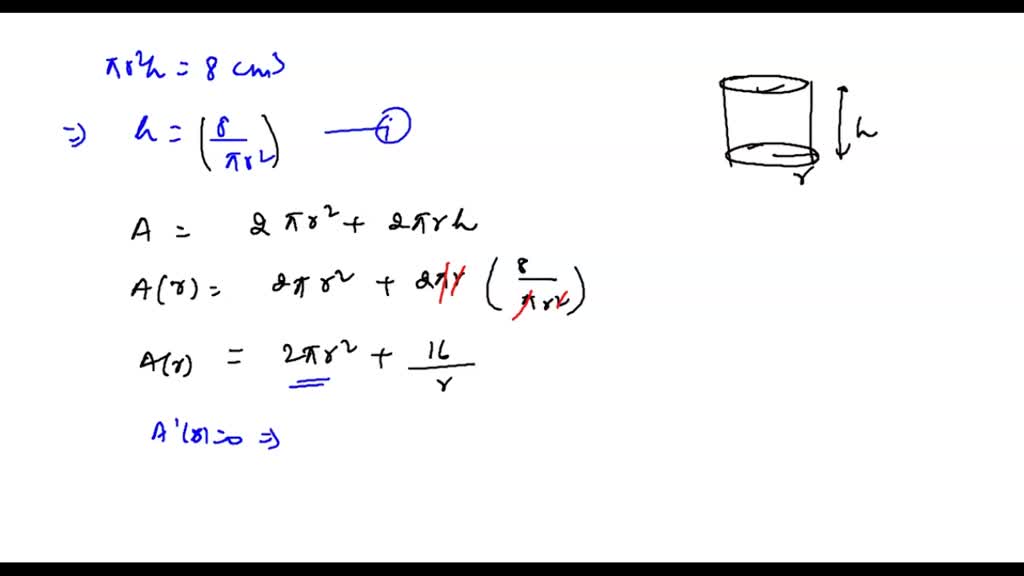 πr²h = 8 cm³
⇒ h = (8/πr²) — i
h
r
A = 2πr² + 2πrh
A(r) = 2πr² + 2πr (8/πr²)
A(r) = 2πr² + 16/r
A'(r)=0 ⇒